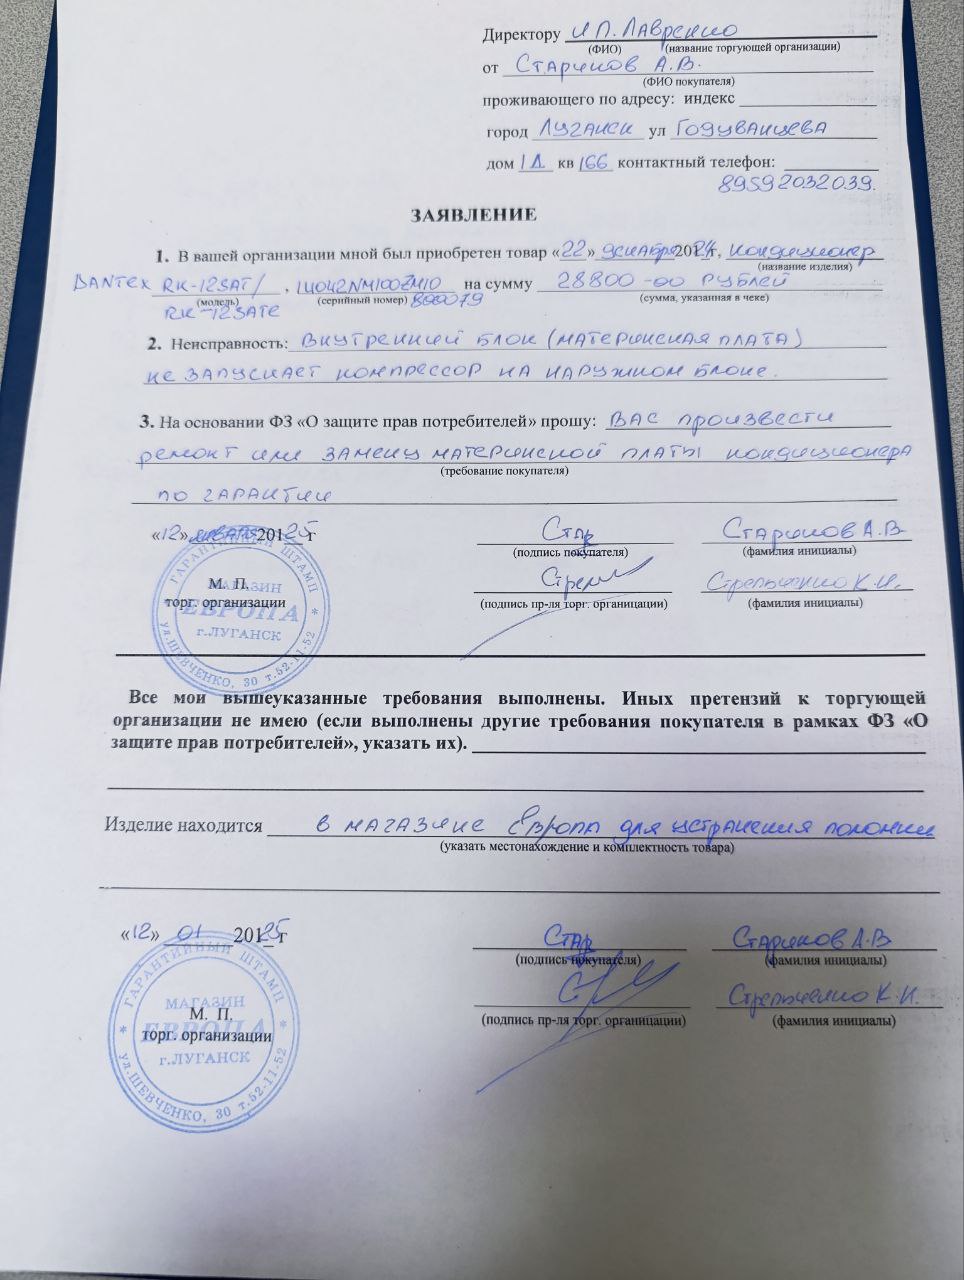 Директору ИП. Лавренко
(ФИО) (название торгующей организации)
от Стариков А.В.
(ФИО покупателя)
проживающего по адресу: индекс
город Луганск ул Годуванцева
дом 1Д кв 166 контактный телефон:
89592032039.
ЗАЯВЛЕНИЕ
1. В вашей организации мной был приобретен товар «22» декабря 2024г, кондиционер
(название изделия)
DANTEX RK-12SAT/ , на сумму 28800-00 рублей
(модель) (серийный номер) (сумма, указанная в чеке)
RK-12SATE
2. Неисправность: Внутренний блок (материнская плата)
не запускает компрессор на наружном блоке.
3. На основании ФЗ «О защите прав потребителей» прошу: Вас произвести
ремонт или замену материнской платы кондиционера
(требование покупателя)
по гарантии
«12» января 20125 г Стар Стариков А.В.
(подпись покупателя) (фамилия инициалы)
М. П. Стрельченко К.И.
торг. организации (подпись пр-ля торг. органицации) (фамилия инициалы)
* ГАРАНТИЙНЫЙ ШТАМП * ул.ШЕВЧЕНКО, 30 т.52-11-52
МАГАЗИН
ЕВРОПА
г.ЛУГАНСК
Все мои вышеуказанные требования выполнены. Иных претензий к торгующей
организации не имею (если выполнены другие требования покупателя в рамках ФЗ «О
защите прав потребителей», указать их).
Изделие находится в магазине Европа для устранения поломки
(указать местонахождение и комплектность товара)
«12» 01 20125 г Стар Стариков А.В
(подпись покупателя) (фамилия инициалы)
М. П. Стрельченко К.И.
торг. организации (подпись пр-ля торг. органицации) (фамилия инициалы)
* ГАРАНТИЙНЫЙ ШТАМП * ул.ШЕВЧЕНКО, 30 т.52-11-52
МАГАЗИН
ЕВРОПА
г.ЛУГАНСК